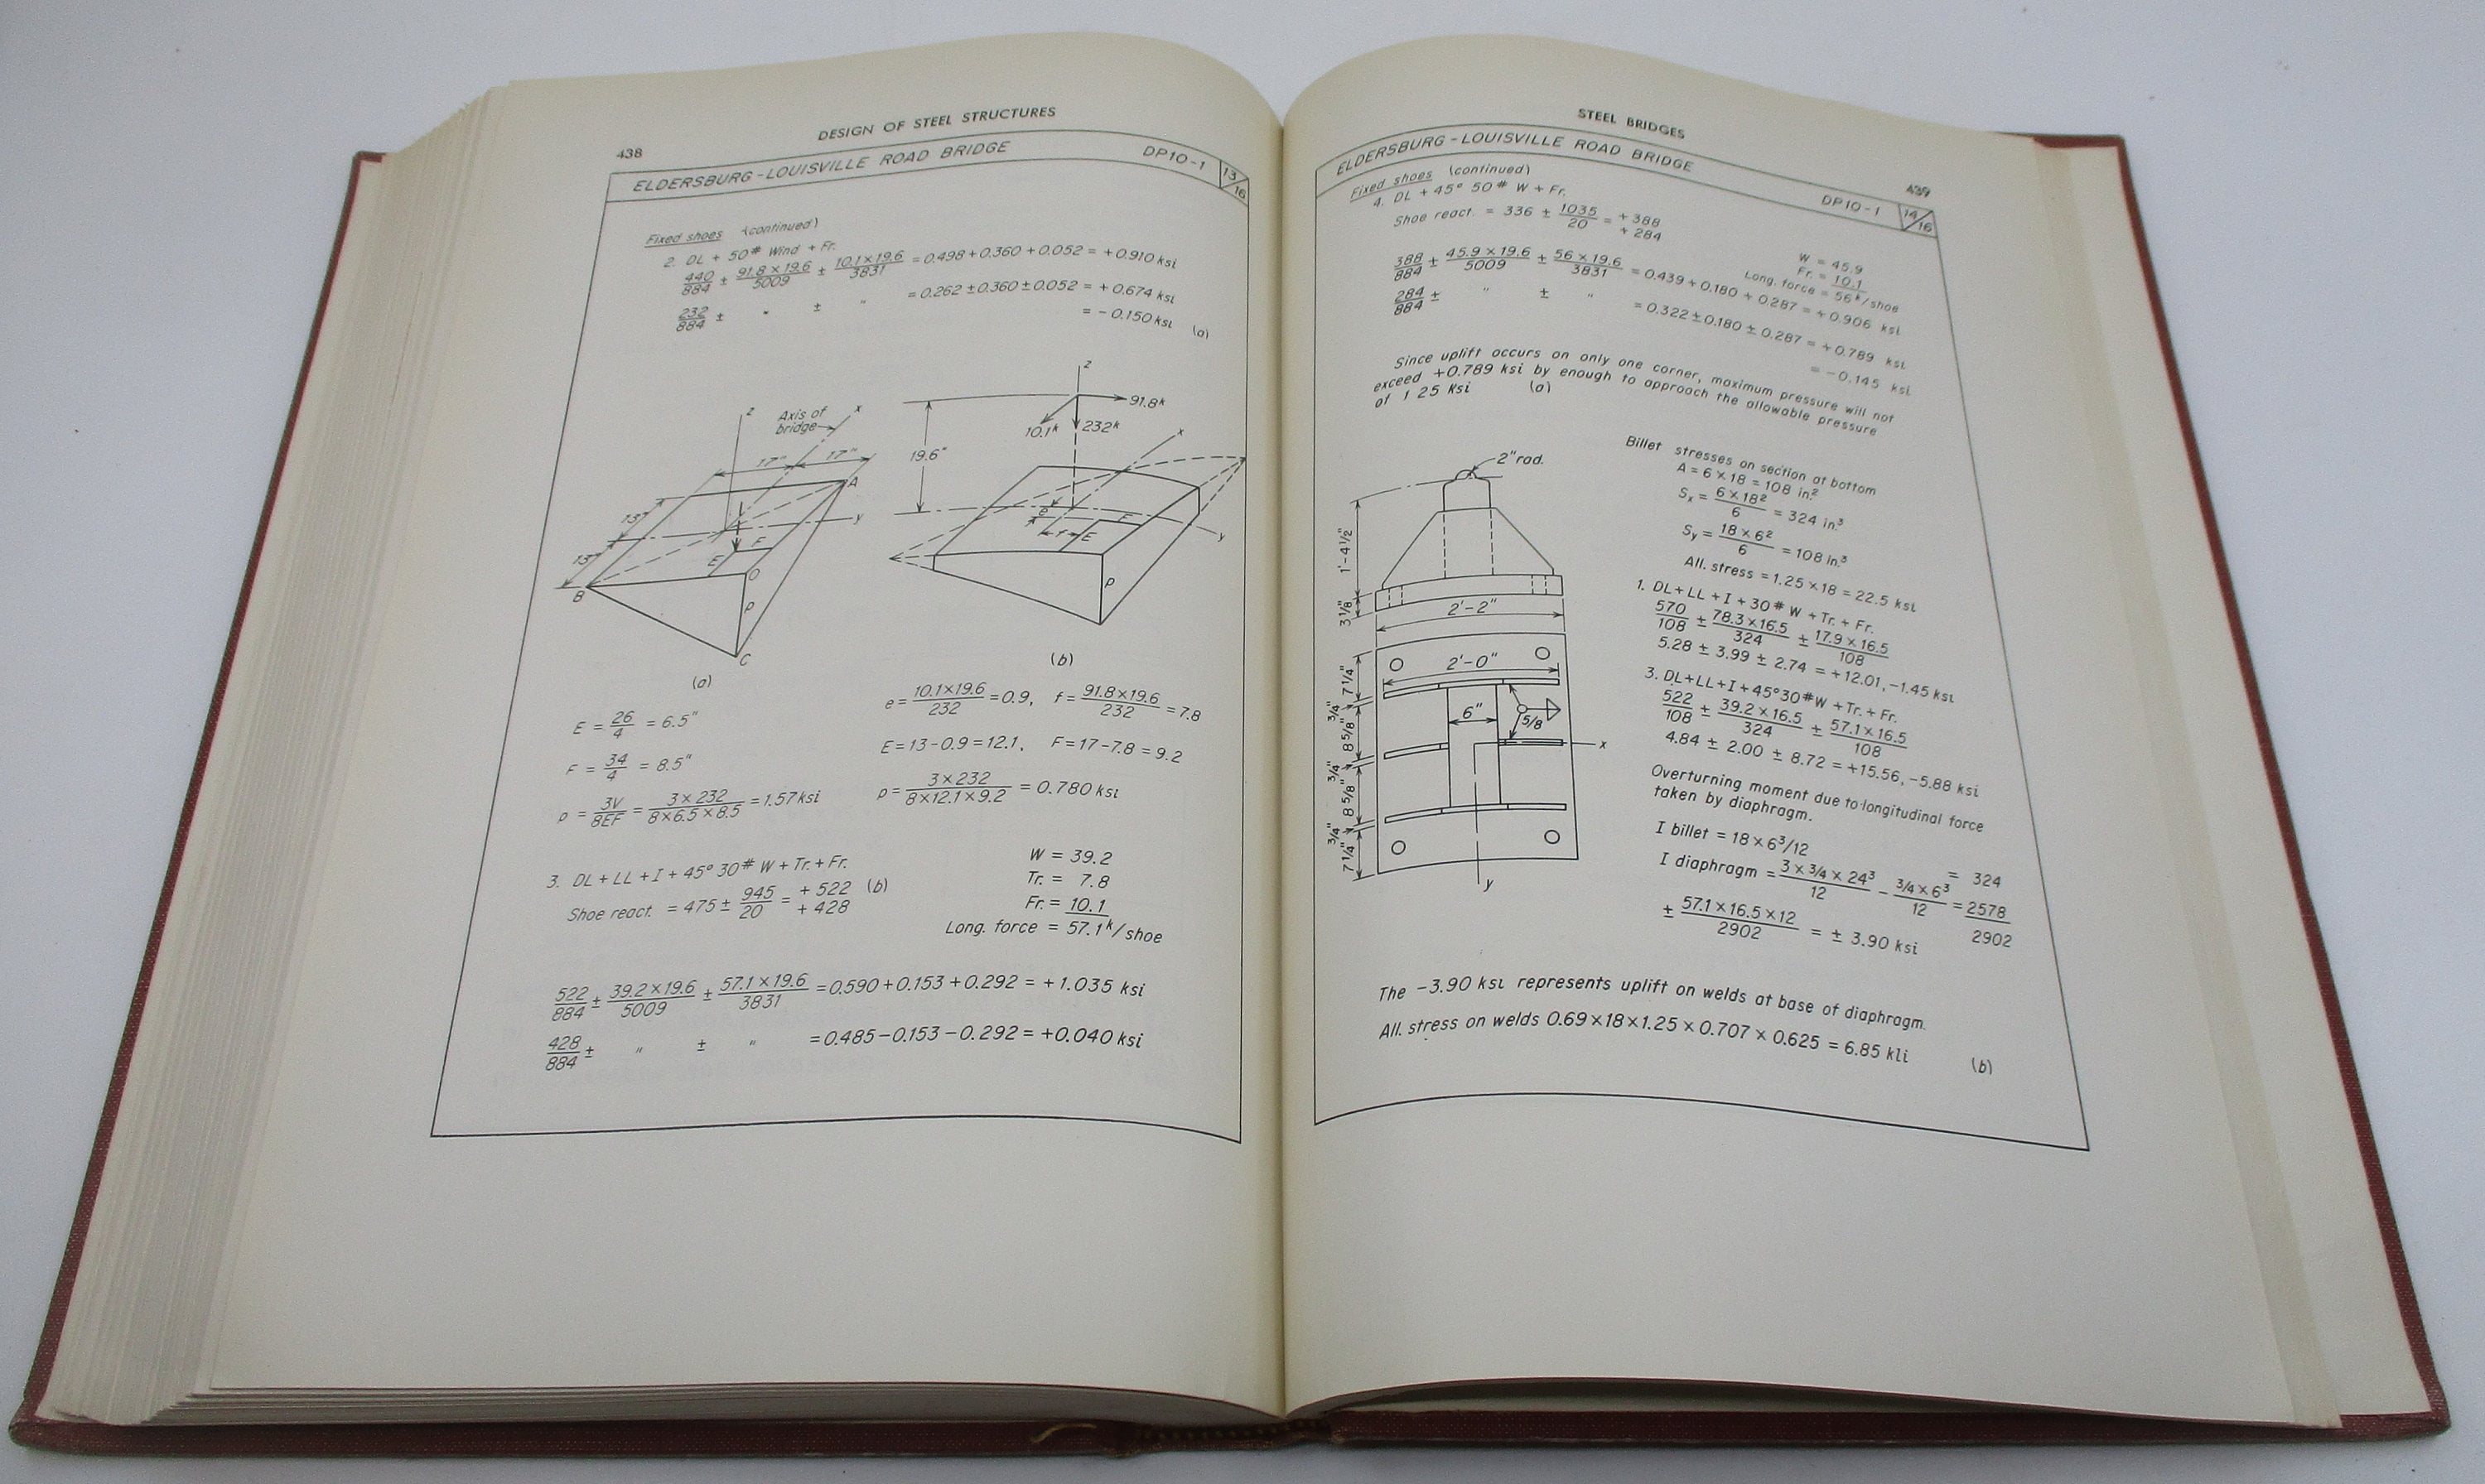 438
DESIGN OF STEEL STRUCTURES
ELDERSBURG-LOUISVILLE ROAD BRIDGE DP10-1 13/16
Fixed shoes (continued)
2. DL + 50# Wind + Fr.
440/884 ± 91.8×19.6/5009 ± 10.1×19.6/3831 = 0.498+0.360+0.052 = +0.910 ksi
232/884 ± " ± " = 0.262±0.360±0.052 = +0.674 ksi
= -0.150 ksi (a)
z
Axis of
bridge
x
17" 17"
A
13"
y
13"
F
E
O
B
p
C
(a)
z
91.8k
10.1k 232k
x
19.6"
e
F
f E
y
p
(b)
E = 26/4 = 6.5"
F = 34/4 = 8.5"
p = 3V/8EF = 3×232/8×6.5×8.5 = 1.57 ksi
e = 10.1×19.6/232 = 0.9, f = 91.8×19.6/232 = 7.8
E = 13-0.9 = 12.1, F = 17-7.8 = 9.2
p = 3×232/8×12.1×9.2 = 0.780 ksi
3. DL+LL+I+45° 30# W+Tr.+Fr.
Shoe react. = 475 ± 945/20 = +522 (b)
+428
W = 39.2
Tr. = 7.8
Fr. = 10.1
Long. force = 57.1k/shoe
522/884 ± 39.2×19.6/5009 ± 57.1×19.6/3831 = 0.590+0.153+0.292 = +1.035 ksi
428/884 ± " ± " = 0.485-0.153-0.292 = +0.040 ksi
STEEL BRIDGES
439
ELDERSBURG-LOUISVILLE ROAD BRIDGE DP10-1 14/16
Fixed shoes (continued)
4. DL + 45° 50# W + Fr.
Shoe react. = 336 ± 1035/20 = +388
+284
W = 45.9
Fr. = 10.1
Long. force = 56k/shoe
388/884 ± 45.9×19.6/5009 ± 56×19.6/3831 = 0.439+0.180+0.287 = +0.906 ksi
284/884 ± " ± " = 0.322±0.180±0.287 = +0.789 ksi
= -0.145 ksi
Since uplift occurs on only one corner, maximum pressure will not
exceed +0.789 ksi by enough to approach the allowable pressure
of 1 25 Ksi (a)
2" rad.
1'-4 1/2"
3 1/8"
2'-2"
2'-0"
7 1/4"
3/4"
8 5/8"
3/4"
8 5/8"
3/4"
7 1/4"
6"
5/8
x
y
Billet stresses on section at bottom
A = 6×18 = 108 in.²
Sx = 6×18²/6 = 324 in.³
Sy = 18×6²/6 = 108 in.³
All. stress = 1.25×18 = 22.5 ksi
1. DL+LL+I+30# W+Tr.+Fr.
570/108 ± 78.3×16.5/324 ± 17.9×16.5/108
5.28 ± 3.99 ± 2.74 = +12.01, -1.45 ksi
3. DL+LL+I+45°30#W+Tr.+Fr.
522/108 ± 39.2×16.5/324 ± 57.1×16.5/108
4.84 ± 2.00 ± 8.72 = +15.56, -5.88 ksi
Overturning moment due to longitudinal force
taken by diaphragm.
I billet = 18×6³/12 = 324
I diaphragm = 3×3/4×24³/12 - 3/4×6³/12 = 2578
2902
± 57.1×16.5×12/2902 = ± 3.90 ksi
The -3.90 ksi represents uplift on welds at base of diaphragm.
All. stress on welds 0.69×18×1.25×0.707×0.625 = 6.85 kli (b)